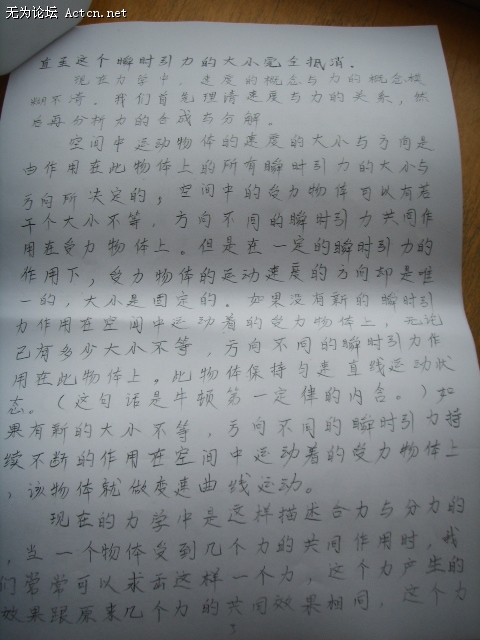 无为论坛 Actcn.net
直至这个瞬时引力的大小完全抵消。
现在力学中，速度的概念与力的概念模
糊不清。我们首先理清速度与力的关系，然
后再分析力的合成与分解。
空间中运动物体的速度的大小与方向是
由作用在此物体上的所有瞬时引力的大小与
方向所决定的；空间中的受力物体可以有若
干个大小不等，方向不同的瞬时引力共同作
用在受力物体上。但是在一定的瞬时引力的
作用下，受力物体的运动速度的方向却是唯
一的，大小是固定的。如果没有新的瞬时引
力作用在空间中运动着的受力物体上，无论
已有多少大小不等，方向不同的瞬时引力作
用在此物体上。此物体保持匀速直线运动状
态。（这句话是牛顿第一定律的内含。）如
果有新的大小不等，方向不同的瞬时引力持
续不断的作用在空间中运动着的受力物体上
，该物体就做变速曲线运动。
现在的力学中是这样描述合力与分力的
，当一个物体受到几个力的共同作用时，我
们常常可以求出这样一个力，这个力产生的
效果跟原来几个力的共同效果相同，这个力
3